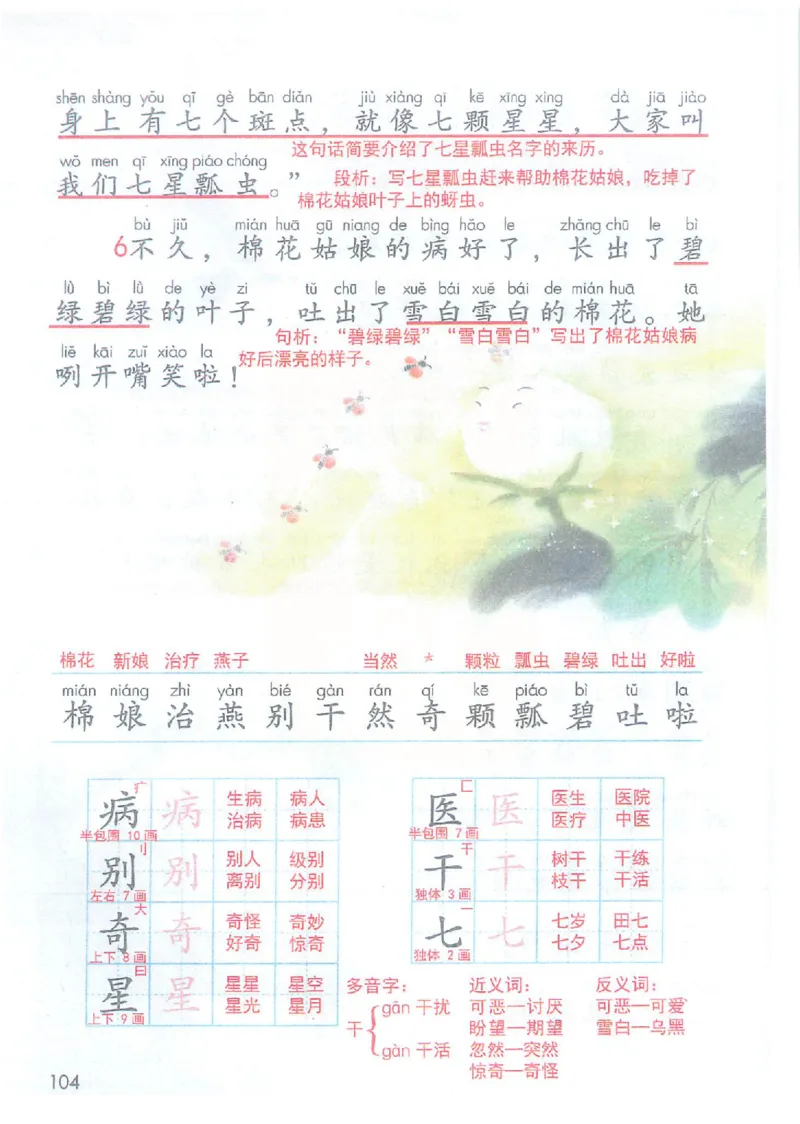 shēn shàng yǒu qī gè bān diǎn jiù xiàng qī kē xīng xing dà jiā jiào
身上有七个斑点，就像七颗星星，大家叫
这句话简要介绍了七星瓢虫名字的来历。
wǒ men qī xīng piáo chóng
我们七星瓢虫。”
段析：写七星瓢虫赶来帮助棉花姑娘，吃掉了
棉花姑娘叶子上的蚜虫。
bù jiǔ mián huā gū niang de bìng hǎo le zhǎng chū le bì
6不久，棉花姑娘的病好了，长出了碧
lǜ bì lǜ de yè zi tǔ chū le xuě bái xuě bái de mián huā tā
绿碧绿的叶子，吐出了雪白雪白的棉花。她
句析：“碧绿碧绿”“雪白雪白”写出了棉花姑娘病
好后漂亮的样子。
liě kāi zuǐ xiào la
咧开嘴笑啦！
棉花 新娘 治疗 燕子 当然 * 颗粒 瓢虫 碧绿 吐出 好啦
mián niáng zhì yàn bié gàn rán qí kē piáo bì tǔ la
棉 娘 治 燕 别 干 然 奇 颗 瓢 碧 吐 啦
病 疒 病 生病 病人
治病 病患
半包围 10画
别 刂 别 别人 级别
离别 分别
左右 7画
奇 大 奇 奇怪 奇妙
好奇 惊奇
上下 8画
星 日 星 星星 星空
星光 星月
上下 9画
医 匚 医 医生 医院
医疗 中医
半包围 7画
干 干 干 树干 干练
枝干 干活
独体 3画
七 一 七 七岁 田七
七夕 七点
独体 2画
多音字：
干
gān 干扰
gàn 干活
近义词：
可恶—讨厌
盼望—期望
忽然—突然
惊奇—奇怪
反义词：
可恶—可爱
雪白—乌黑
104